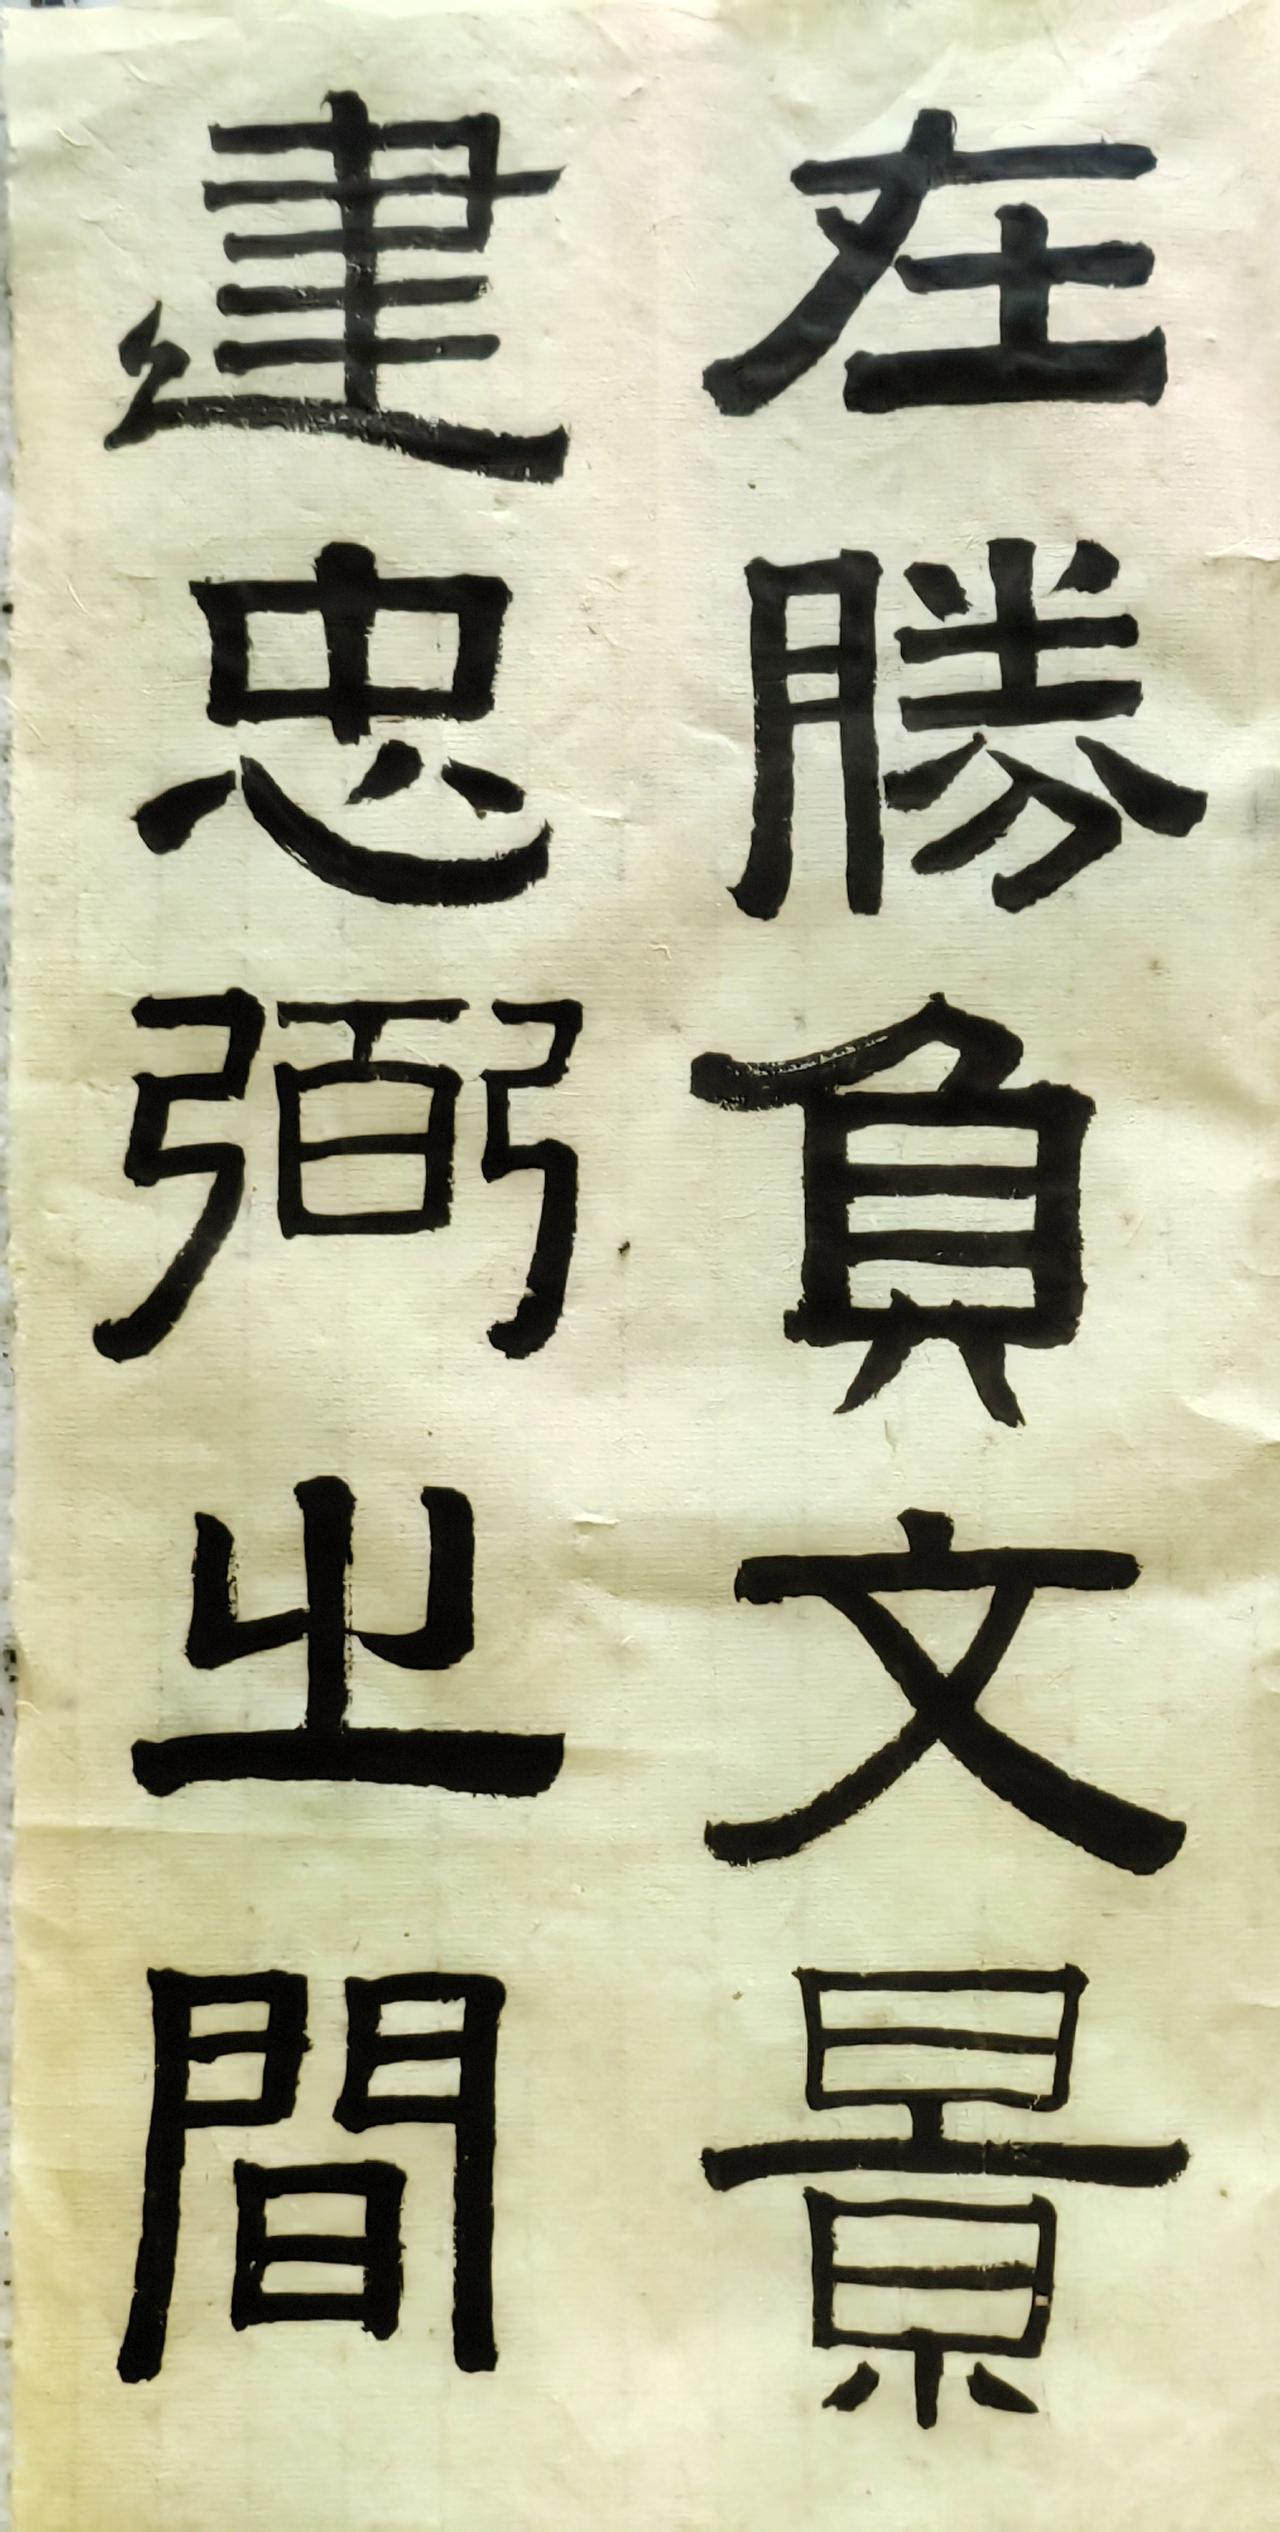 在勝負文景
建忠弼出間